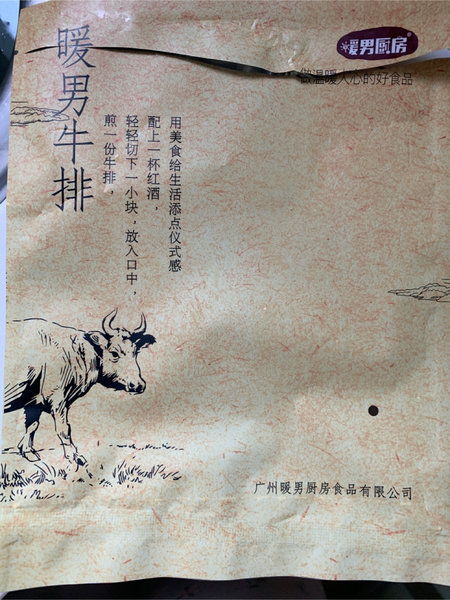 暖男厨房
做温暖人心的好食品
暖男牛排
煎一份牛排，
轻轻切下一小块，放入口中，
配上一杯红酒，
用美食给生活添点仪式感
广州暖男厨房食品有限公司